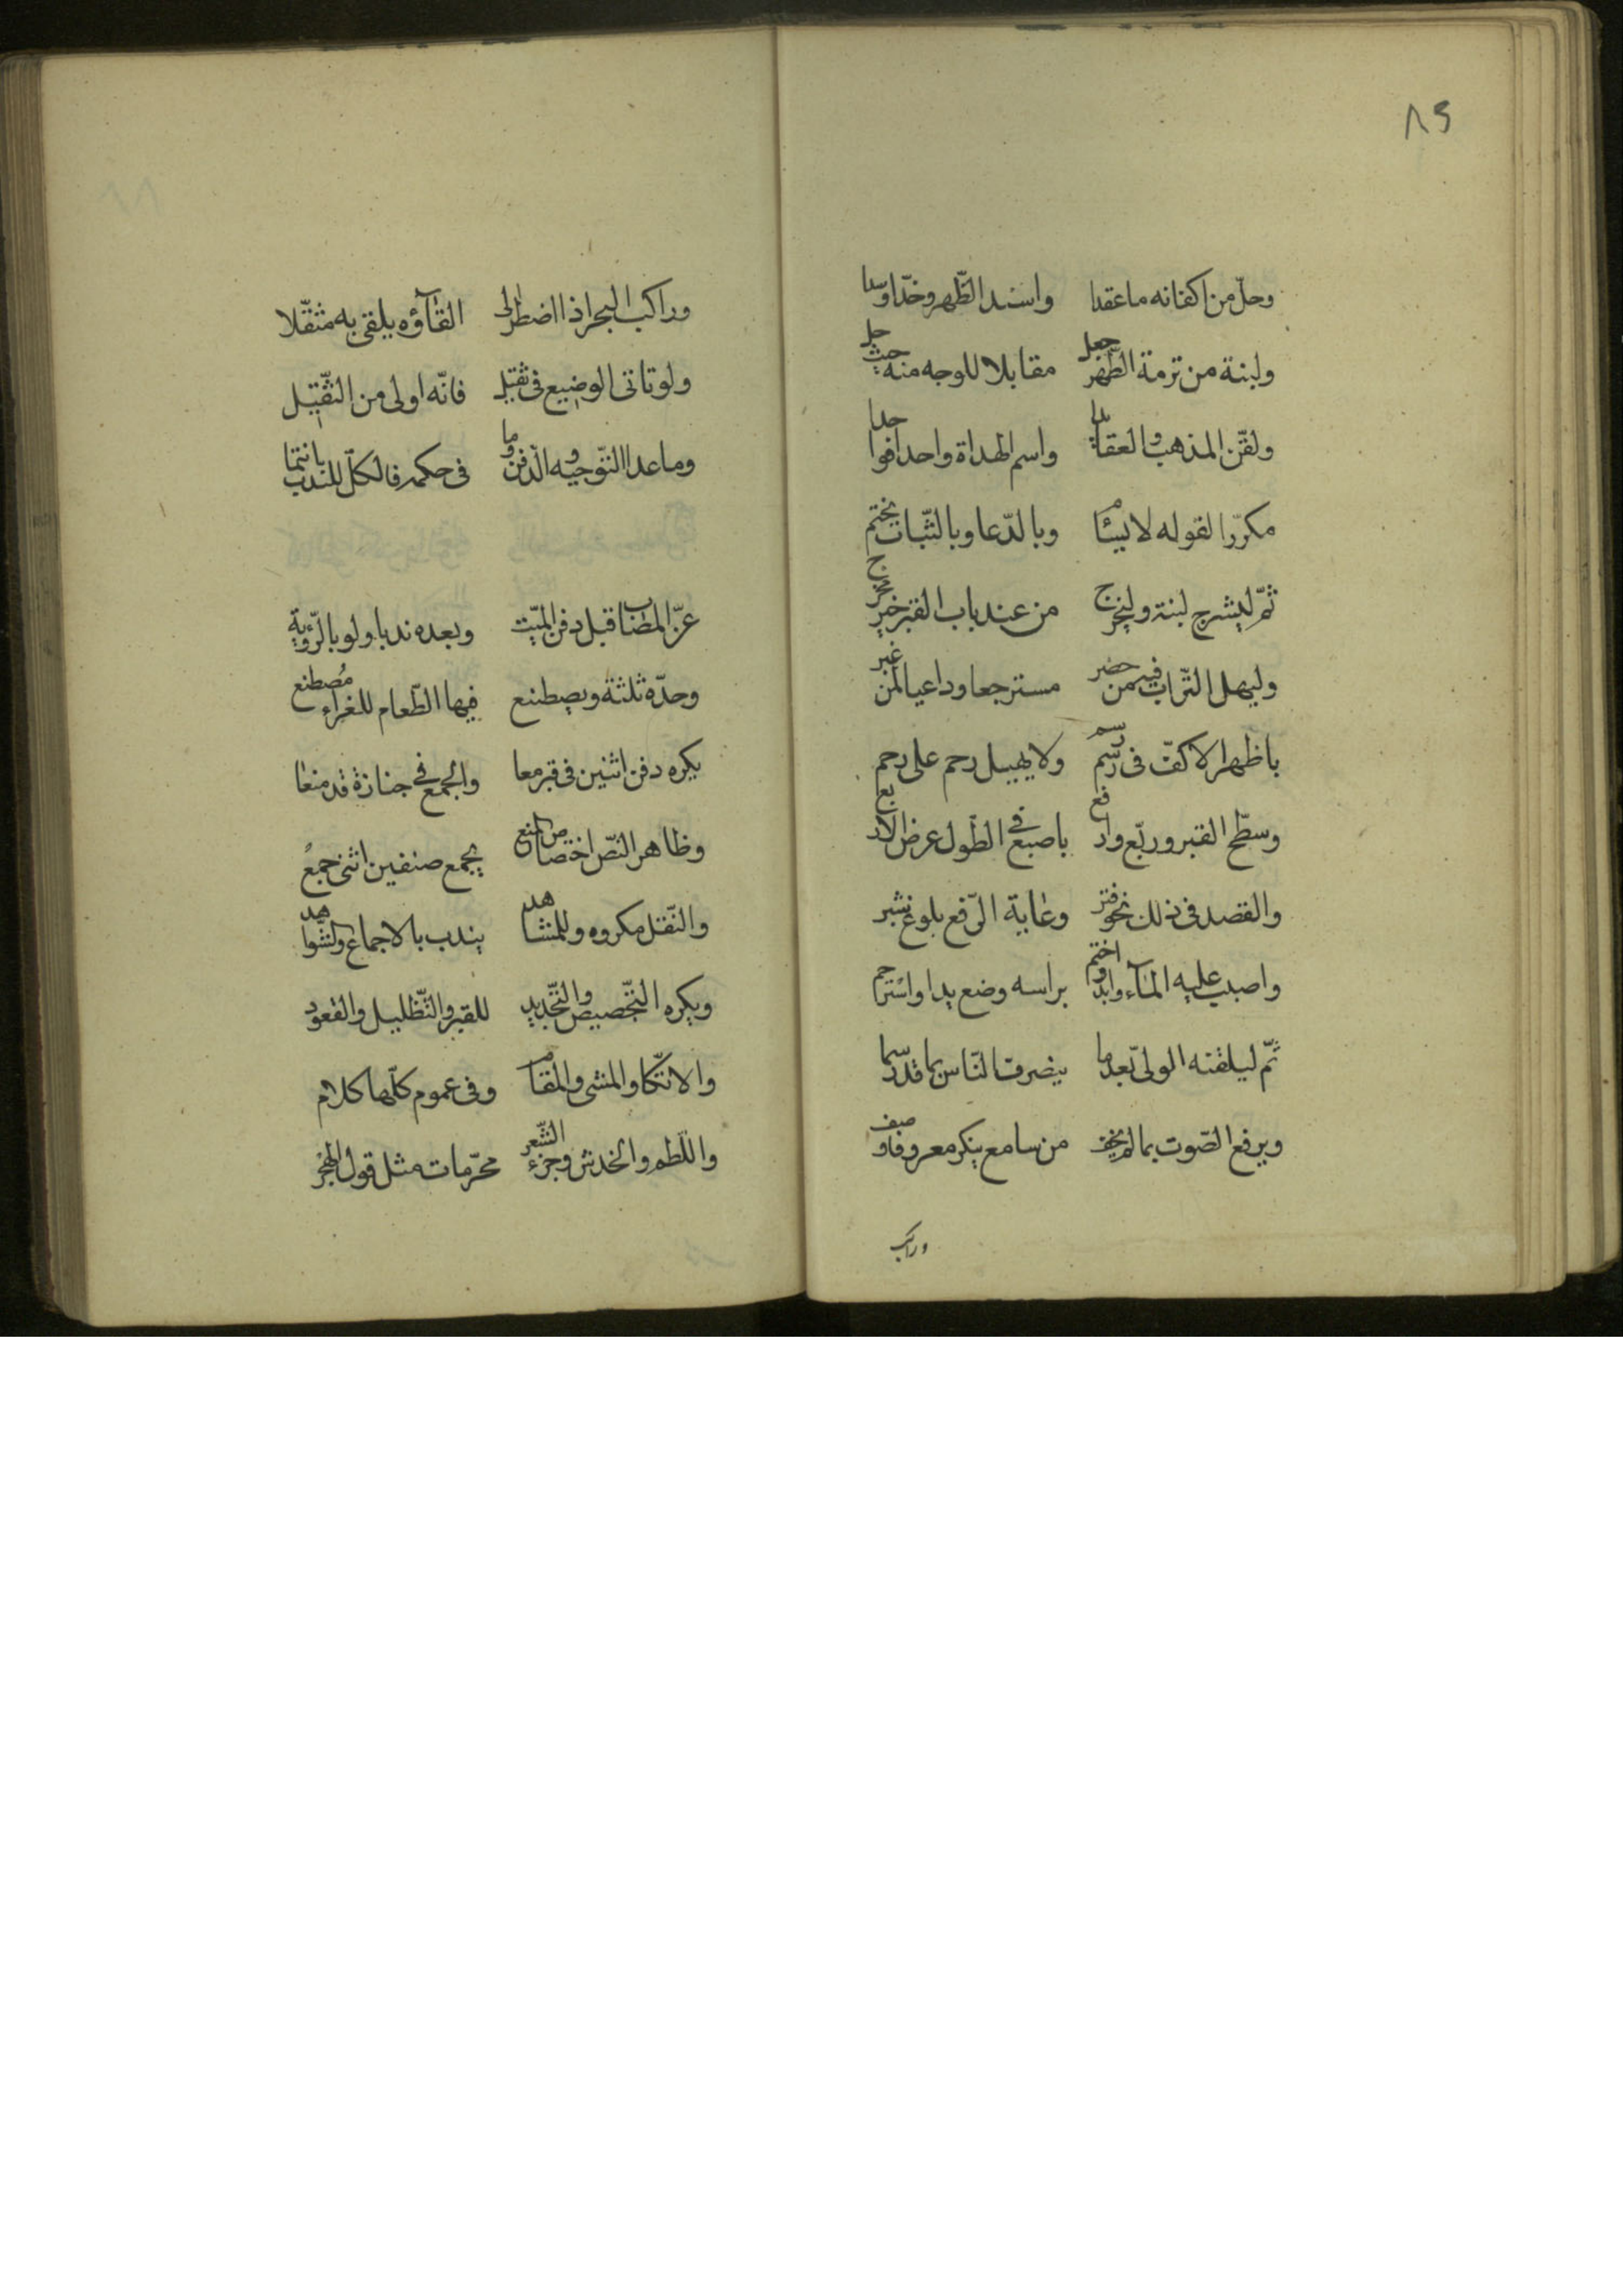 ٨٩
وحلّ من اكفانه ما عقدا واسند الظّهر وخدّا وسدا
ولبنة من تربة الظّهر جعل مقابلا للوجه منه حيث حل
ولقّن المذهب والعقايدا واسم الهداة واحدا فواحدا
مكرّرا لقوله لا يسئما وبالدّعا وبالثّبات يختم
ثمّ ليشرج لبنة وليخرج من عند باب القبر خير مخرج
وليهل التّراب فيه من حضر مسترجعا وداعيا لمن غبر
باظهر الاكفّ فى رسم رسم ولا يهيل رحم على رحم
وسطّح القبر وربّع وارفع باصبع فى الطّول عرض الاربع
والقصد فى ذلك نحو فتر وغاية الرّفع بلوغ شبر
واصبب عليه المآء وابدء واختم براسه وضع يدا واسترحم
ثمّ ليلقنه الولىّ بعد ما ينصرف النّاس بما قد رسما
ويرفع الصّوت بما لم يخف من سامع ينكر معروفا وصف
وراكب
وراكب البحر اذا اضطرّ الى القآؤه يلقى به مثقّلا
ولو تاتى الوضيع فى ثقيل فانّه اولى من التّثقيل
وما عدا التّوجيه والدّفن وما فى حكمه فالكلّ للندب انتما
عزّ المصاب قبل دفن الميّت وبعده ندبا ولو بالرّؤية
وحدّه ثلثة ويصطنع فيها الطّعام للغراء مُصطنع
يكره دفن اثنين فى قبر معا والجمع فى جنازة قد منعا
وظاهر النّص اختصاص المنع بجمع صنفين اثنى جمع
والنّقل مكروه وللمشاهد يندب بالاجماع والشّواهد
ويكره التّجصيص والتّجديد للقبر والتّظليل والقعود
والاتّكا والمشى والمقام وفى عموم كلّها كلام
واللّطم والخدش وجزء الشّعر محرّمات مثل قول الهجر